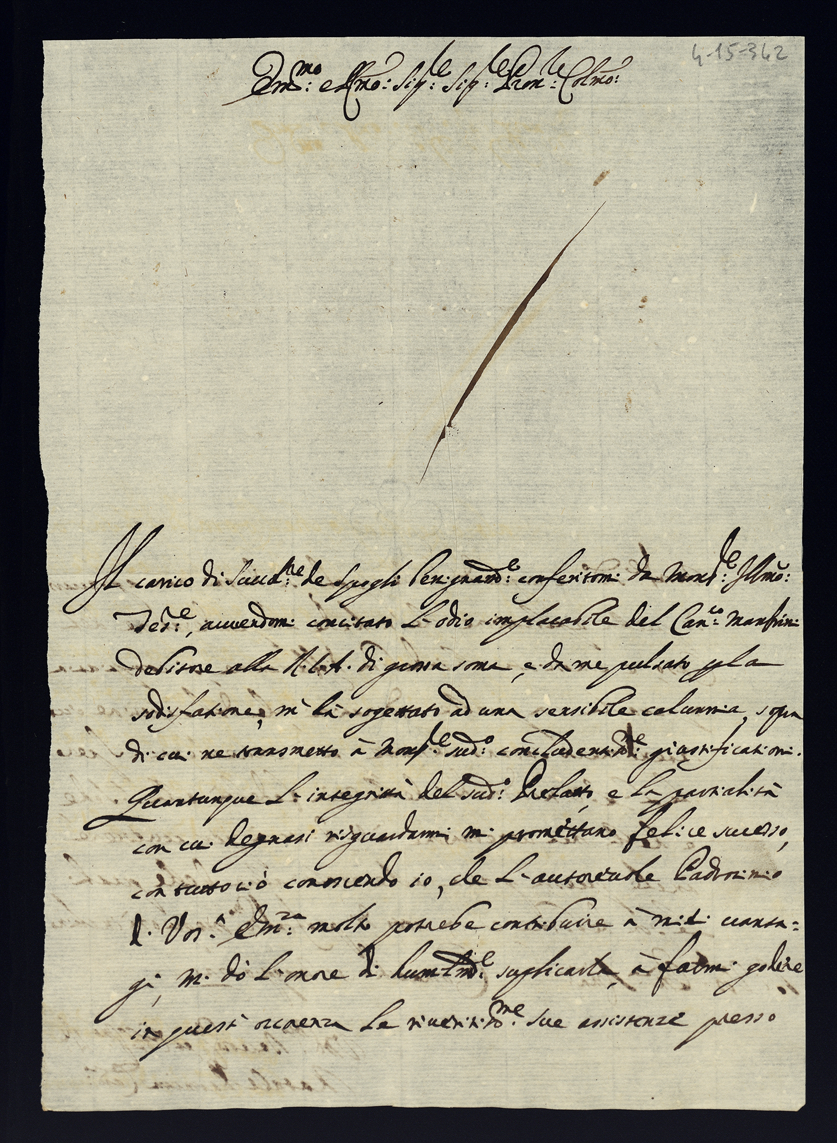 4-15-342
Em.mo e Rmo: Sig.re Sig.re Pron.e Colmo:
Il carico di Succol.re de Spogli benignam.e conferitomi da Mons.re Illmo:
Tes.re, avvendomi concitato l'odio implacabile del Can.co Manfrin
debitore alla R.C.A. di grossa soma, e da me pulsato p la
sodisfatione, m'hà sogettato ad una sensibile calunnia, sopra
di cui ne transmetto à Mons.re sud.o concludentis.me giustificationi.
Quantunque l'integrità del sud.o Prelatto, e la parzialità
con cui degnasi risguardarmi mi promettano felice sucesso,
con tuttociò conoscendo io, che l'autorevole Padrocinio
di Vos.a Em.za molto potrebe contribuire à miei vanta=
gi, mi dò l'onore di humilm.e suplicarla, à farmi godere
in questa occorenza le riveritis.me sue assistenze presso